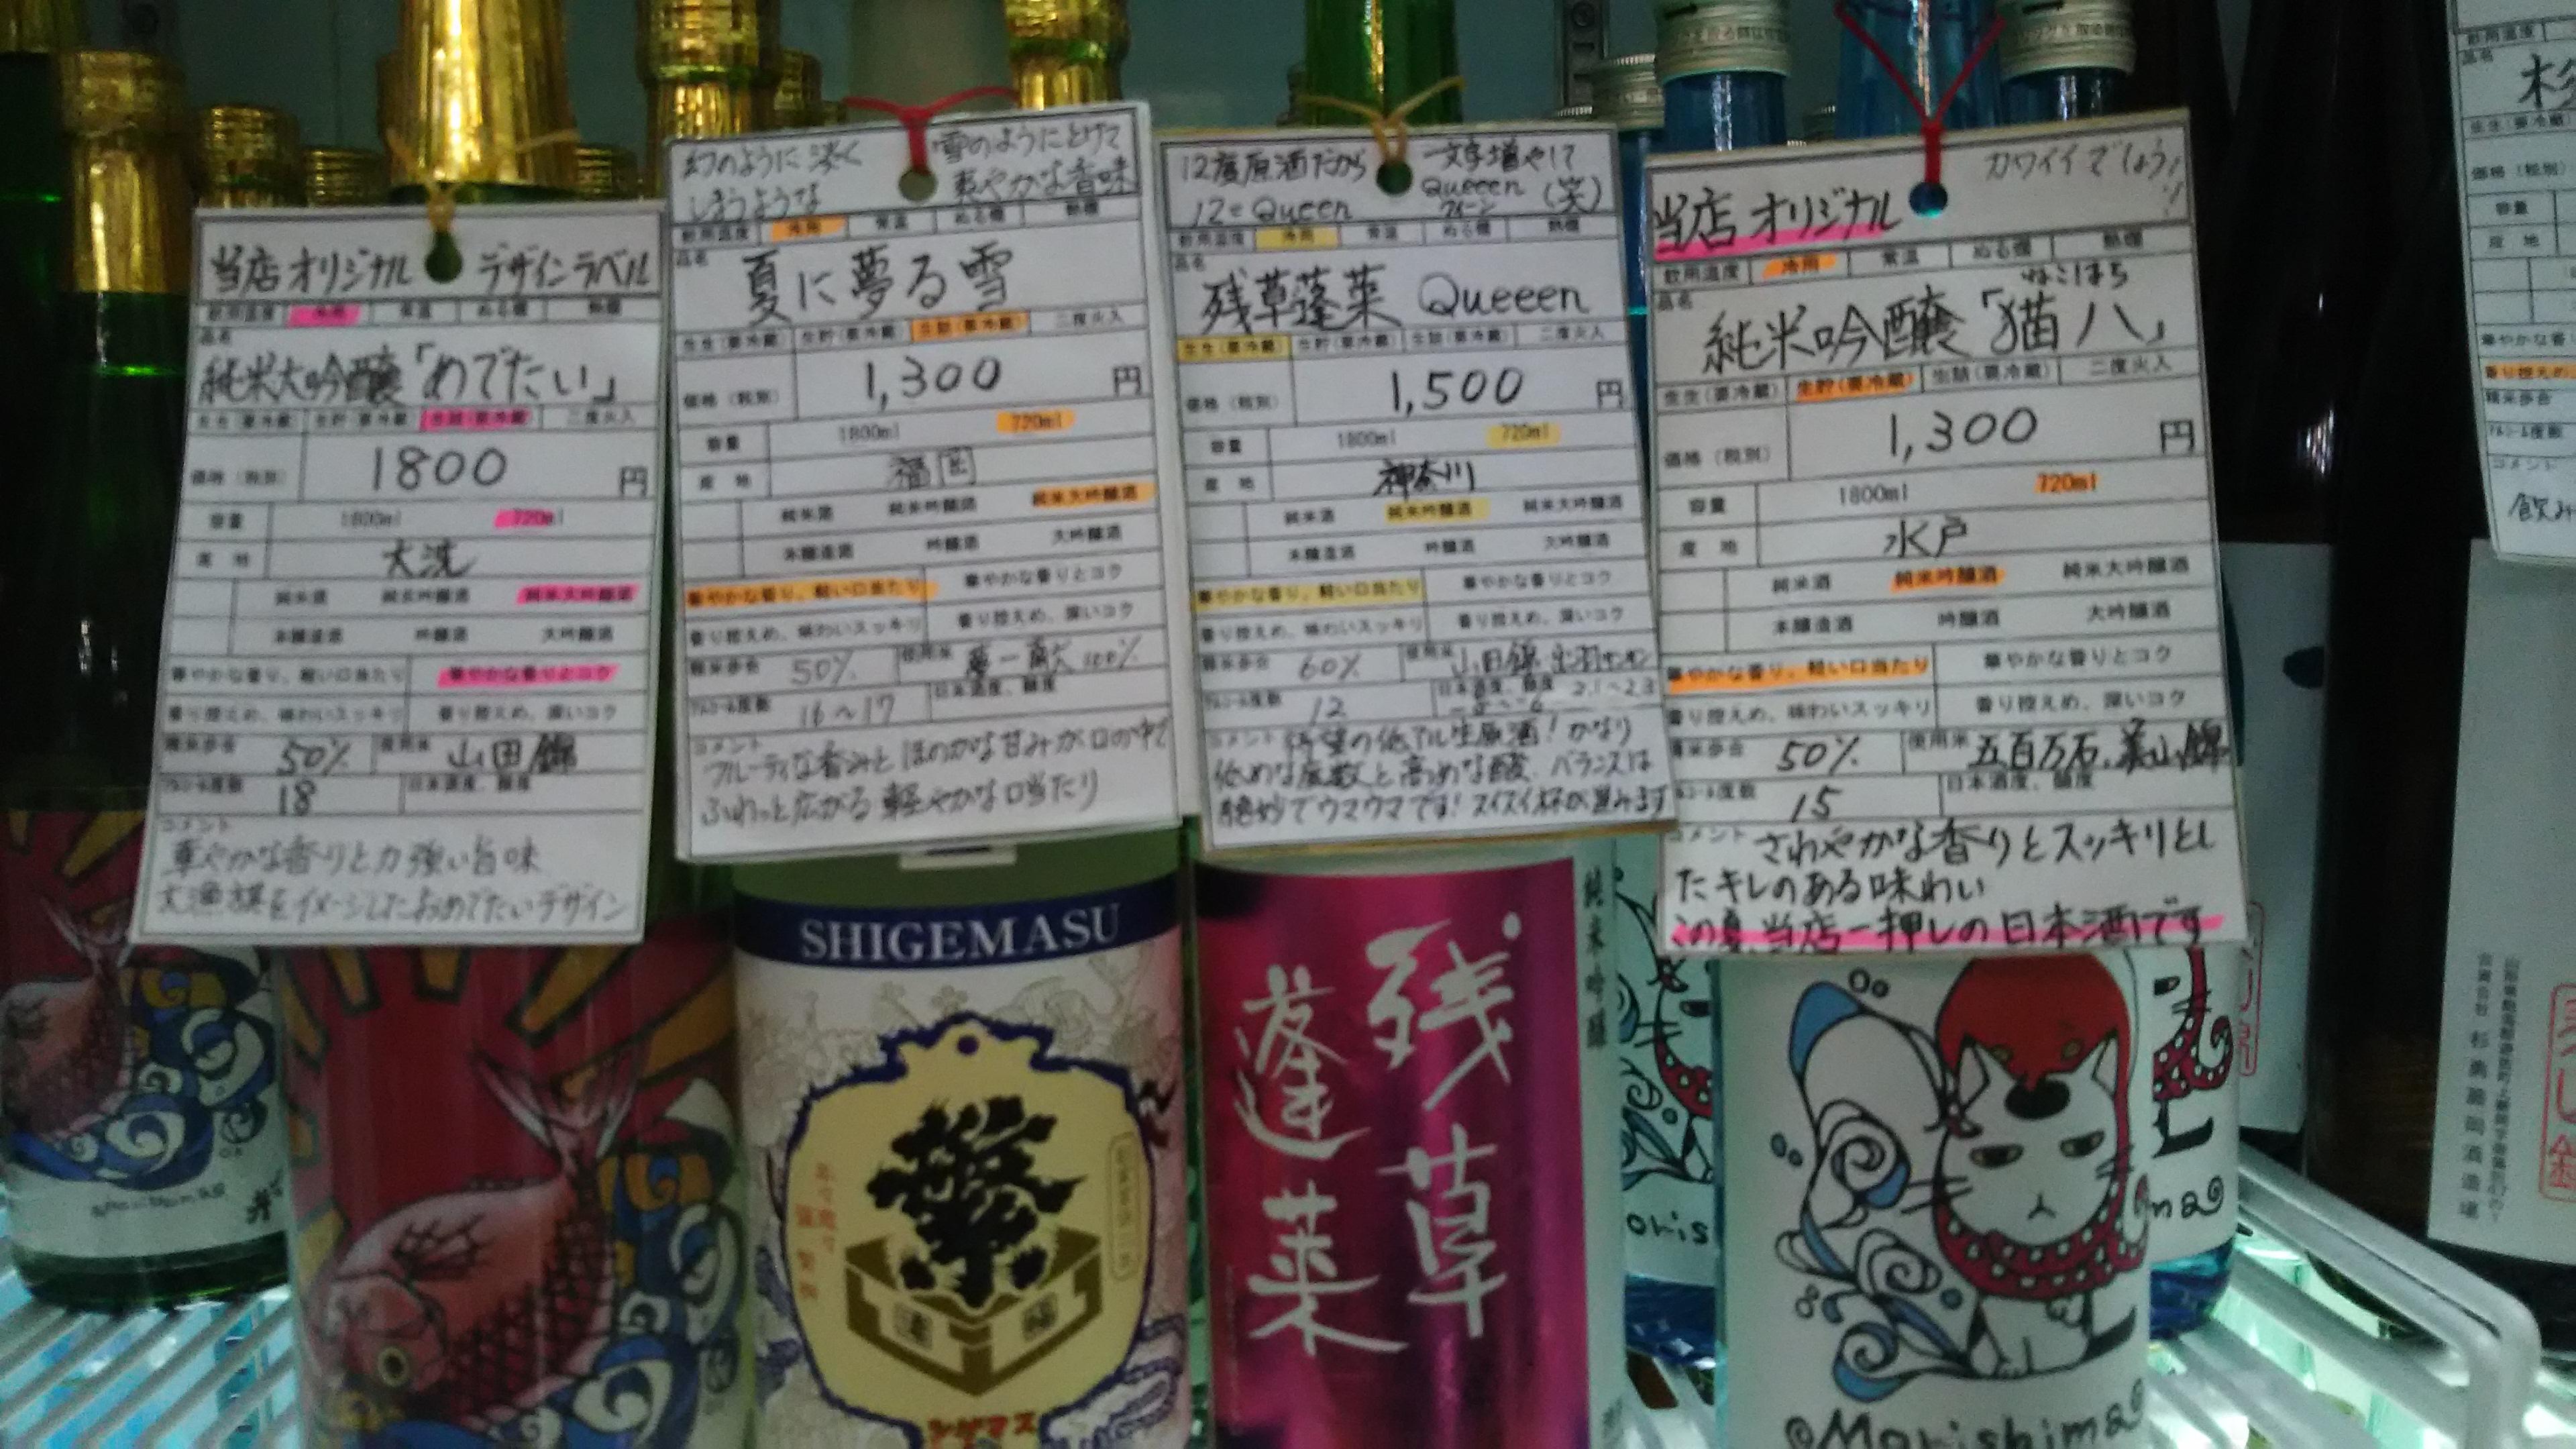 当店オリジナル デザインラベル
飲用温度 冷用 常温 ぬる燗 熱燗
品名
純米大吟醸「めでたい」
生生(要冷蔵) 生貯(要冷蔵) 生詰(要冷蔵) 二度火入
価格(税別) 1800 円
容量 1800ml 720ml
産地 大洗
純米酒 純米吟醸酒 純米大吟醸酒
本醸造酒 吟醸酒 大吟醸酒
華やかな香り、軽い口当たり 華やかな香りとコク
香り控えめ、味わいスッキリ 香り控えめ、深いコク
精米歩合 50% 使用米 山田錦
アルコール度数 18 日本酒度、酸度
コメント
華やかな香りと力強い旨味
大漁旗をイメージしたおめでたいデザイン
幻のように淡く 雪のようにとけて
しまうような 爽やかな香味
飲用温度 冷用 常温 ぬる燗 熱燗
品名
夏に夢る雪
生生(要冷蔵) 生貯(要冷蔵) 生詰(要冷蔵) 二度火入
価格(税別) 1,300 円
容量 1800ml 720ml
産地 福岡
純米酒 純米吟醸酒 純米大吟醸酒
本醸造酒 吟醸酒 大吟醸酒
華やかな香り、軽い口当たり 華やかな香りとコク
香り控えめ、味わいスッキリ 香り控えめ、深いコク
精米歩合 50% 使用米 夢一献 100%
アルコール度数 16〜17 日本酒度、酸度
コメント
フルーティな香みとほのかな甘みが口の中で
ふわっと広がる軽やかな口当たり
12度原酒だから 一文字増やして
12=Queen Queeen (笑)
クイーン
飲用温度 冷用 常温 ぬる燗 熱燗
品名
残草蓬莱 Queeen
生生(要冷蔵) 生貯(要冷蔵) 生詰(要冷蔵) 二度火入
価格(税別) 1,500 円
容量 1800ml 720ml
産地 神奈川
純米酒 純米吟醸酒 純米大吟醸酒
本醸造酒 吟醸酒 大吟醸酒
華やかな香り、軽い口当たり 華やかな香りとコク
香り控えめ、味わいスッキリ 香り控えめ、深いコク
精米歩合 60% 使用米 山田錦
アルコール度数 12 日本酒度、酸度 2.1〜2.3
コメント 待望の低アル生原酒!かなり
低めな度数と高めな酸、バランスは
絶妙でウマウマです!スイスイ杯が進みます
カワイイでしょう!
当店オリジナル
飲用温度 冷用 常温 ぬる燗 熱燗
品名 ねこはち
純米吟醸「猫八」
生生(要冷蔵) 生貯(要冷蔵) 生詰(要冷蔵) 二度火入
価格(税別) 1,300 円
容量 1800ml 720ml
産地 水戸
純米酒 純米吟醸酒 純米大吟醸酒
本醸造酒 吟醸酒 大吟醸酒
華やかな香り、軽い口当たり 華やかな香りとコク
香り控えめ、味わいスッキリ 香り控えめ、深いコク
精米歩合 50% 使用米 五百万石、美山錦
アルコール度数 15 日本酒度、酸度
コメント さわやかな香りとスッキリとし
たキレのある味わい
この夏、当店一押しの日本酒です
飲用温度
品名
価格(税別)
容量
産地
精米歩合
コメント
飲み
SHIGEMASU
シゲマス
残草
蓬莱
純米吟醸
©Morishima@